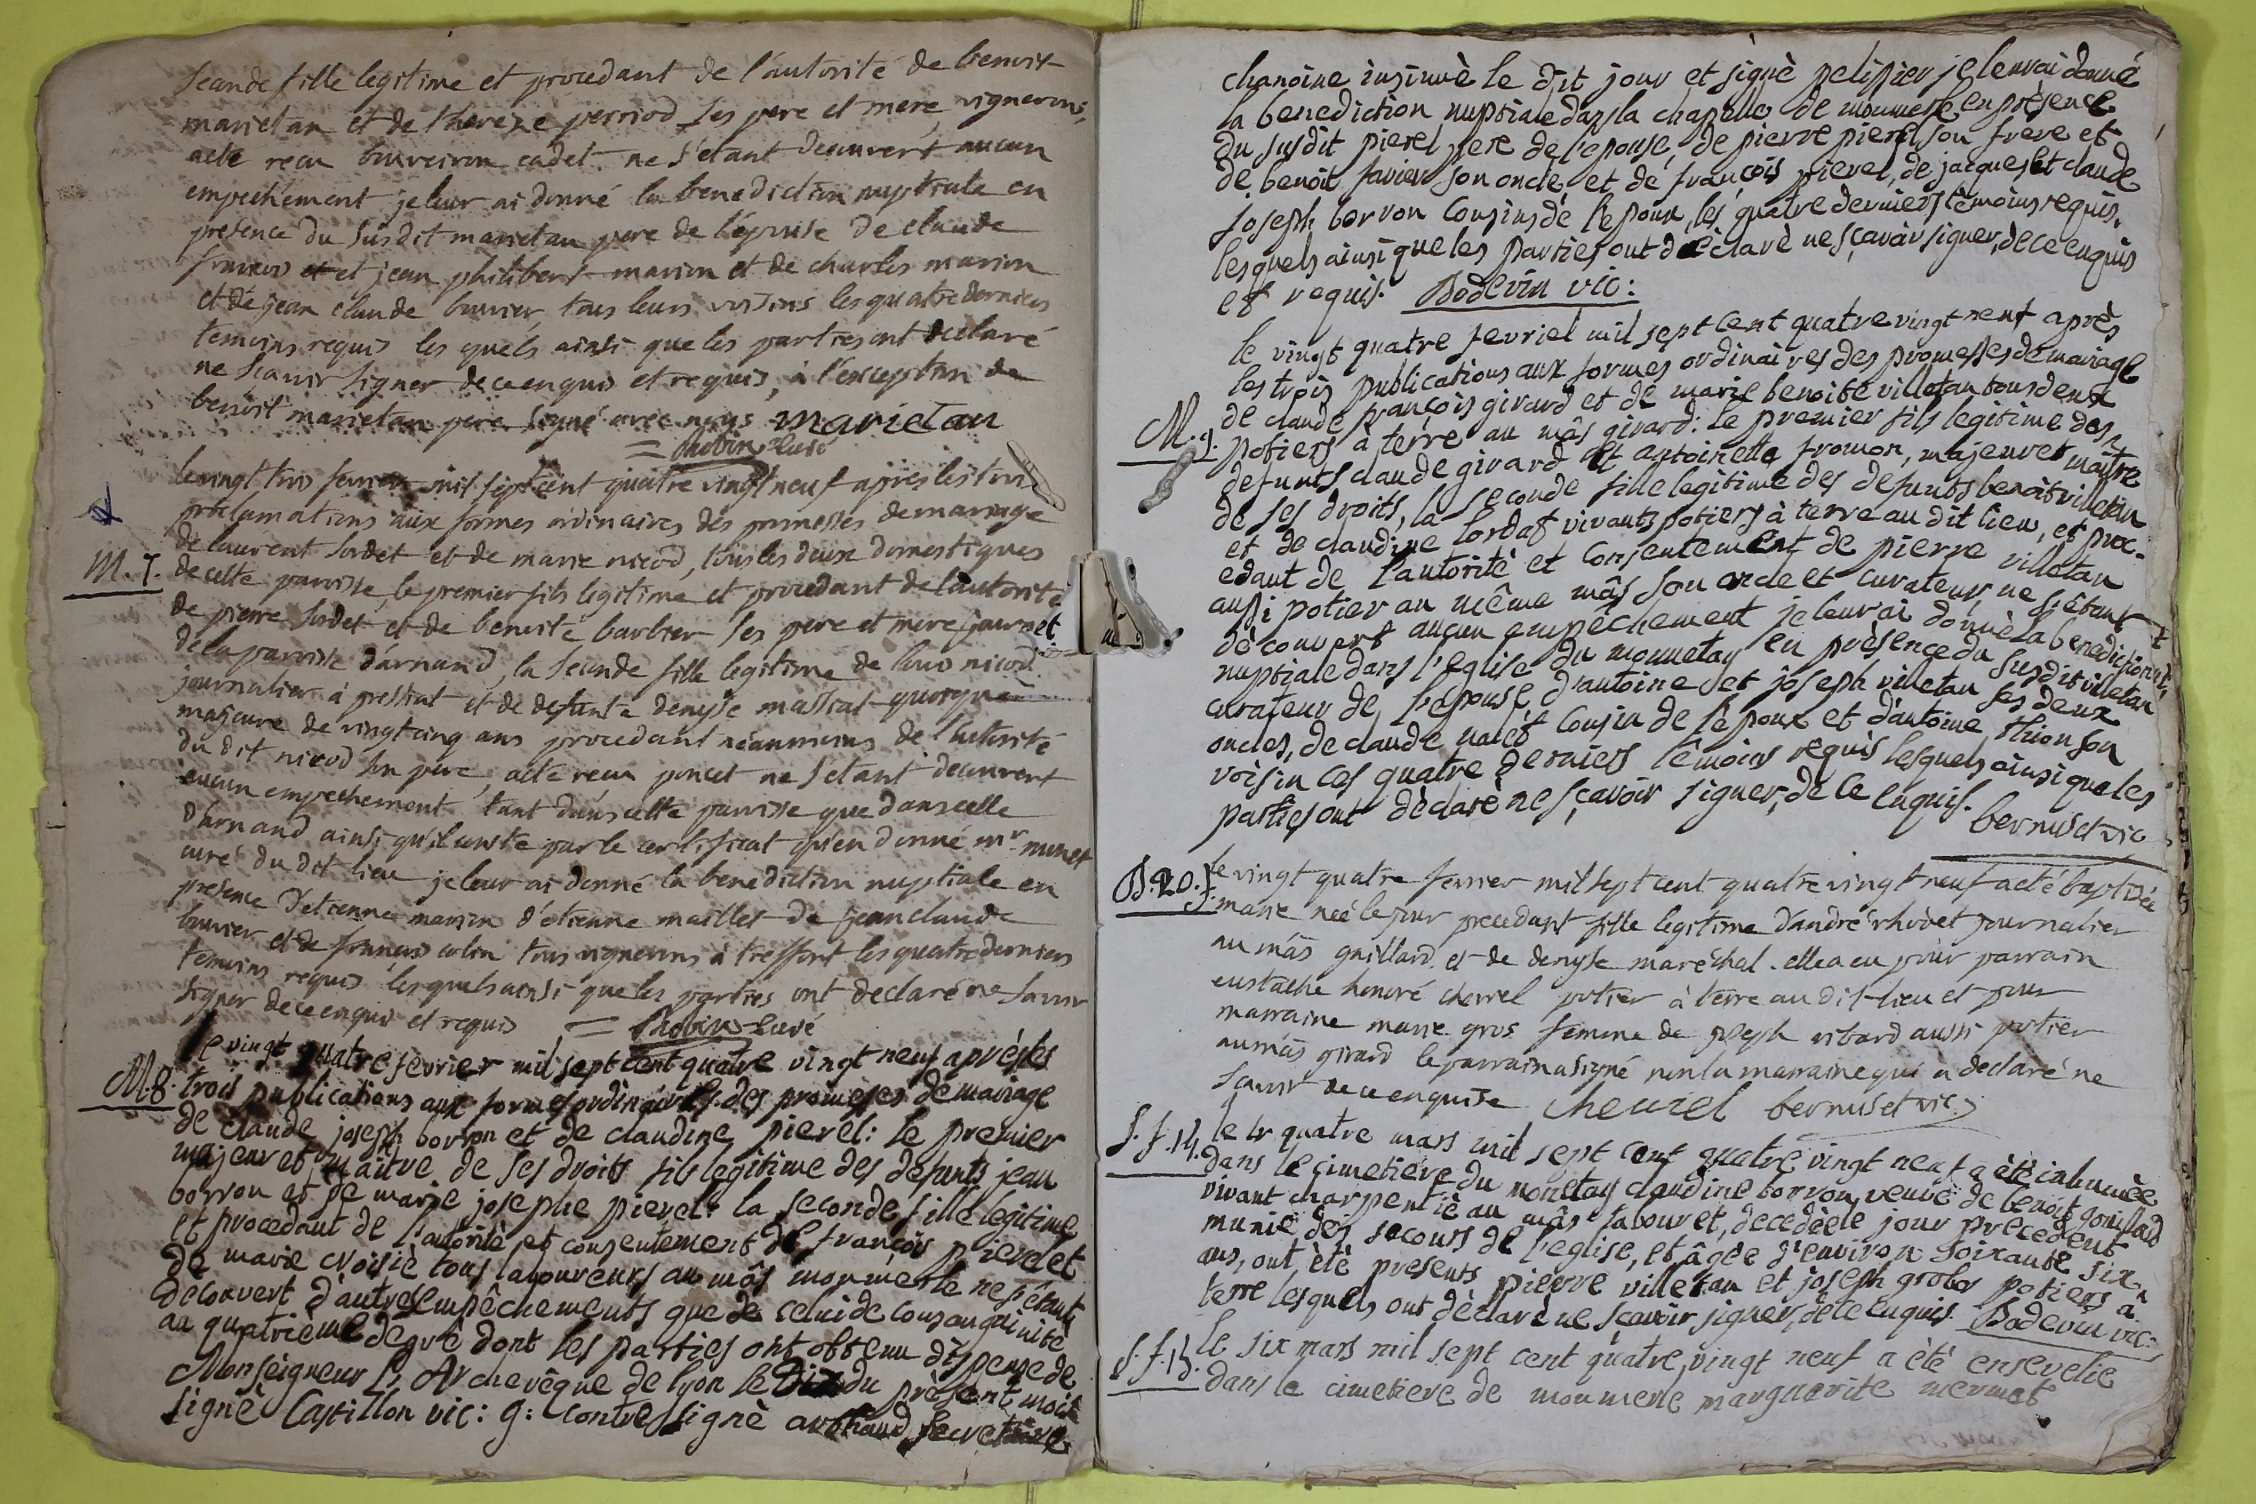 seconde fille legitime et procedant de l'autorité de benoit
marietan et de therese perriod ses pere et mere, vignerons,
acte reçu bouveiron cadet ne s'etant decouvert aucun
empechement je leur ai donné la benediction nuptiale en
presence du susdit marietan pere de l'épouse de claude
francois et et jean philibert marion et de charles marion
et de jean claude bouvier, tous leurs voisins les quatre derniers
temoins requis les quels ainsi que les parties ont declaré
ne scavoir signer de ce enquis et requis, à l'exception de
benoit marietan pere signé avec nous marietan
curé
le vingt trois fevrier mil sept cent quatre vingt neuf apres les trois
proclamations aux formes ordinaires des promesses de mariage
M. 7.
de laurent sordet et de marie nicod, tous les deux domestiques
de cette paroisse, le premier fils legitime et procedant de l'autorité
de pierre sordet et de benoite barbier ses pere et mere
de la paroisse d'arnand, la seconde fille legitime de nicod
journalier à pressiat et de defunte denyse massat quoique
majeure de vingt cinq ans procedant néanmoins de l'autorité
du dit nicod son pere, acte reçu poncet ne s'etant decouvert
aucun empechement tant dans cette paroisse que dans celle
d'arnand ainsi qu'il conste par le certificat qu'en donné mr. munet
curé du dit lieu je leur ai donné la benediction nuptiale en
presence d'etienne marion d'etienne maillet de jean claude
bouvier et de francois colin tous vignerons à treffort les quatre derniers
temoins requis lesquels ainsi que les parties ont declaré ne scavoir
signer de ce enquis et requis curé
M. 8.
le vingt quatre fevrier mil sept cent quatre vingt neuf après les
trois publications aux formes ordinaires des promesses de mariage
de claude joseph borron et de claudine pierel: le premier
majeur et maitre de ses droits fils legitime des defunts jean
borron et de marie josephe pierel: la seconde fille legitime
et procedant de l'autorité et consentement de françois pierel et
de marie croisié tous laboureurs au mâs monmerle ne s'étant
decouvert d'autres empêchements que de celui de consanguinité
au quatrième degré dont les parties ont obtenu dispense de
Monseigneur l'Archevêque de lyon le dix du présent mois
signè Castillon vic: g: contre signè secretaire
chanoine insinuè le dit jour et signè pelissier je leur ai donné
la benediction nuptiale dans la chapelle de monmerle en présence
du susdit pierel pere de l'epouse, de pierre pierel son frere et
de benoit favier son oncle et de françois pierel, de jacques et claude
joseph borron cousins de l'epoux, les quatre derniers témoins requis,
lesquels ainsi que les parties ont déclarè ne sçavoir signer, de ce enquis
et requis. Bodevin vic:
le vingt quatre fevriel mil sept cent quatre vingt neuf après
les trois publications aux formes ordinaires des promesses de mariage
M. 9.
de claude françois girard et de marie benoite villetan tous deux
potiers à terre au mâs girard: le premier fils legitime des
defunts claude girard et antoinette fromon, majeur et maître
de ses droits, la seconde fille legitime des defunts benoit villetan
et de claudine lordat vivants potiers à terre au dit lieu, et proc-
edant de l'autoritè et consentement de pierre villetan
aussi potier au même mâs son oncle et curateur, ne s'étant
dècouvert aucun empêchement je leur ai donnè la benediction
nuptiale dans l'eglise du monnetay en prèsence du susdit villetan
curateur de l'epouse, d'antoine et joseph villetan ses deux
oncles, de claude cousin de l'epoux et d'antoine thion son
voisin ces quatre derniers têmoins requis lesquels ainsi que les
parties ont dèclarè ne sçavoir signer, de ce enquis. bernuset vic
B. 20. f.
le vingt quatre fevrier mil sept cent quatre vingt neuf a eté baptisée
marie neé le jour precedant fille legitime d'andré rhodet journalier
au mâs gaillard et de denyse marechal. elle a eu pour parrain
eustache honoré chevrel potier à terre au dit-lieu et pour
marraine marie gros femme de joseph vibard aussi potier
au mâs girard le parrain a signé non la marraine qui a declaré ne
scavoir de ce enquise cheuriel bernuset vic
S. f. 14.
le quatre mars mil sept cent quatre vingt neuf a étè inhumèe
dans le cimetière du monetay claudine borron, veuve de benoit
vivant charpentiè au mâs sabouret, decedèe le jour precedent
munie des secours de l'eglise, et âgèe d'environ soixante six
ans, ont étè presents pierre villetan et joseph potiers à
terre lesquels ont dèclarè ne scavoir signer, de ce enquis. Bodevin vic:
S. f. 15.
le six mars mil sept cent quatre vingt neuf a étè ensevelie
dans le cimetiere de monmerle marguerite mermet